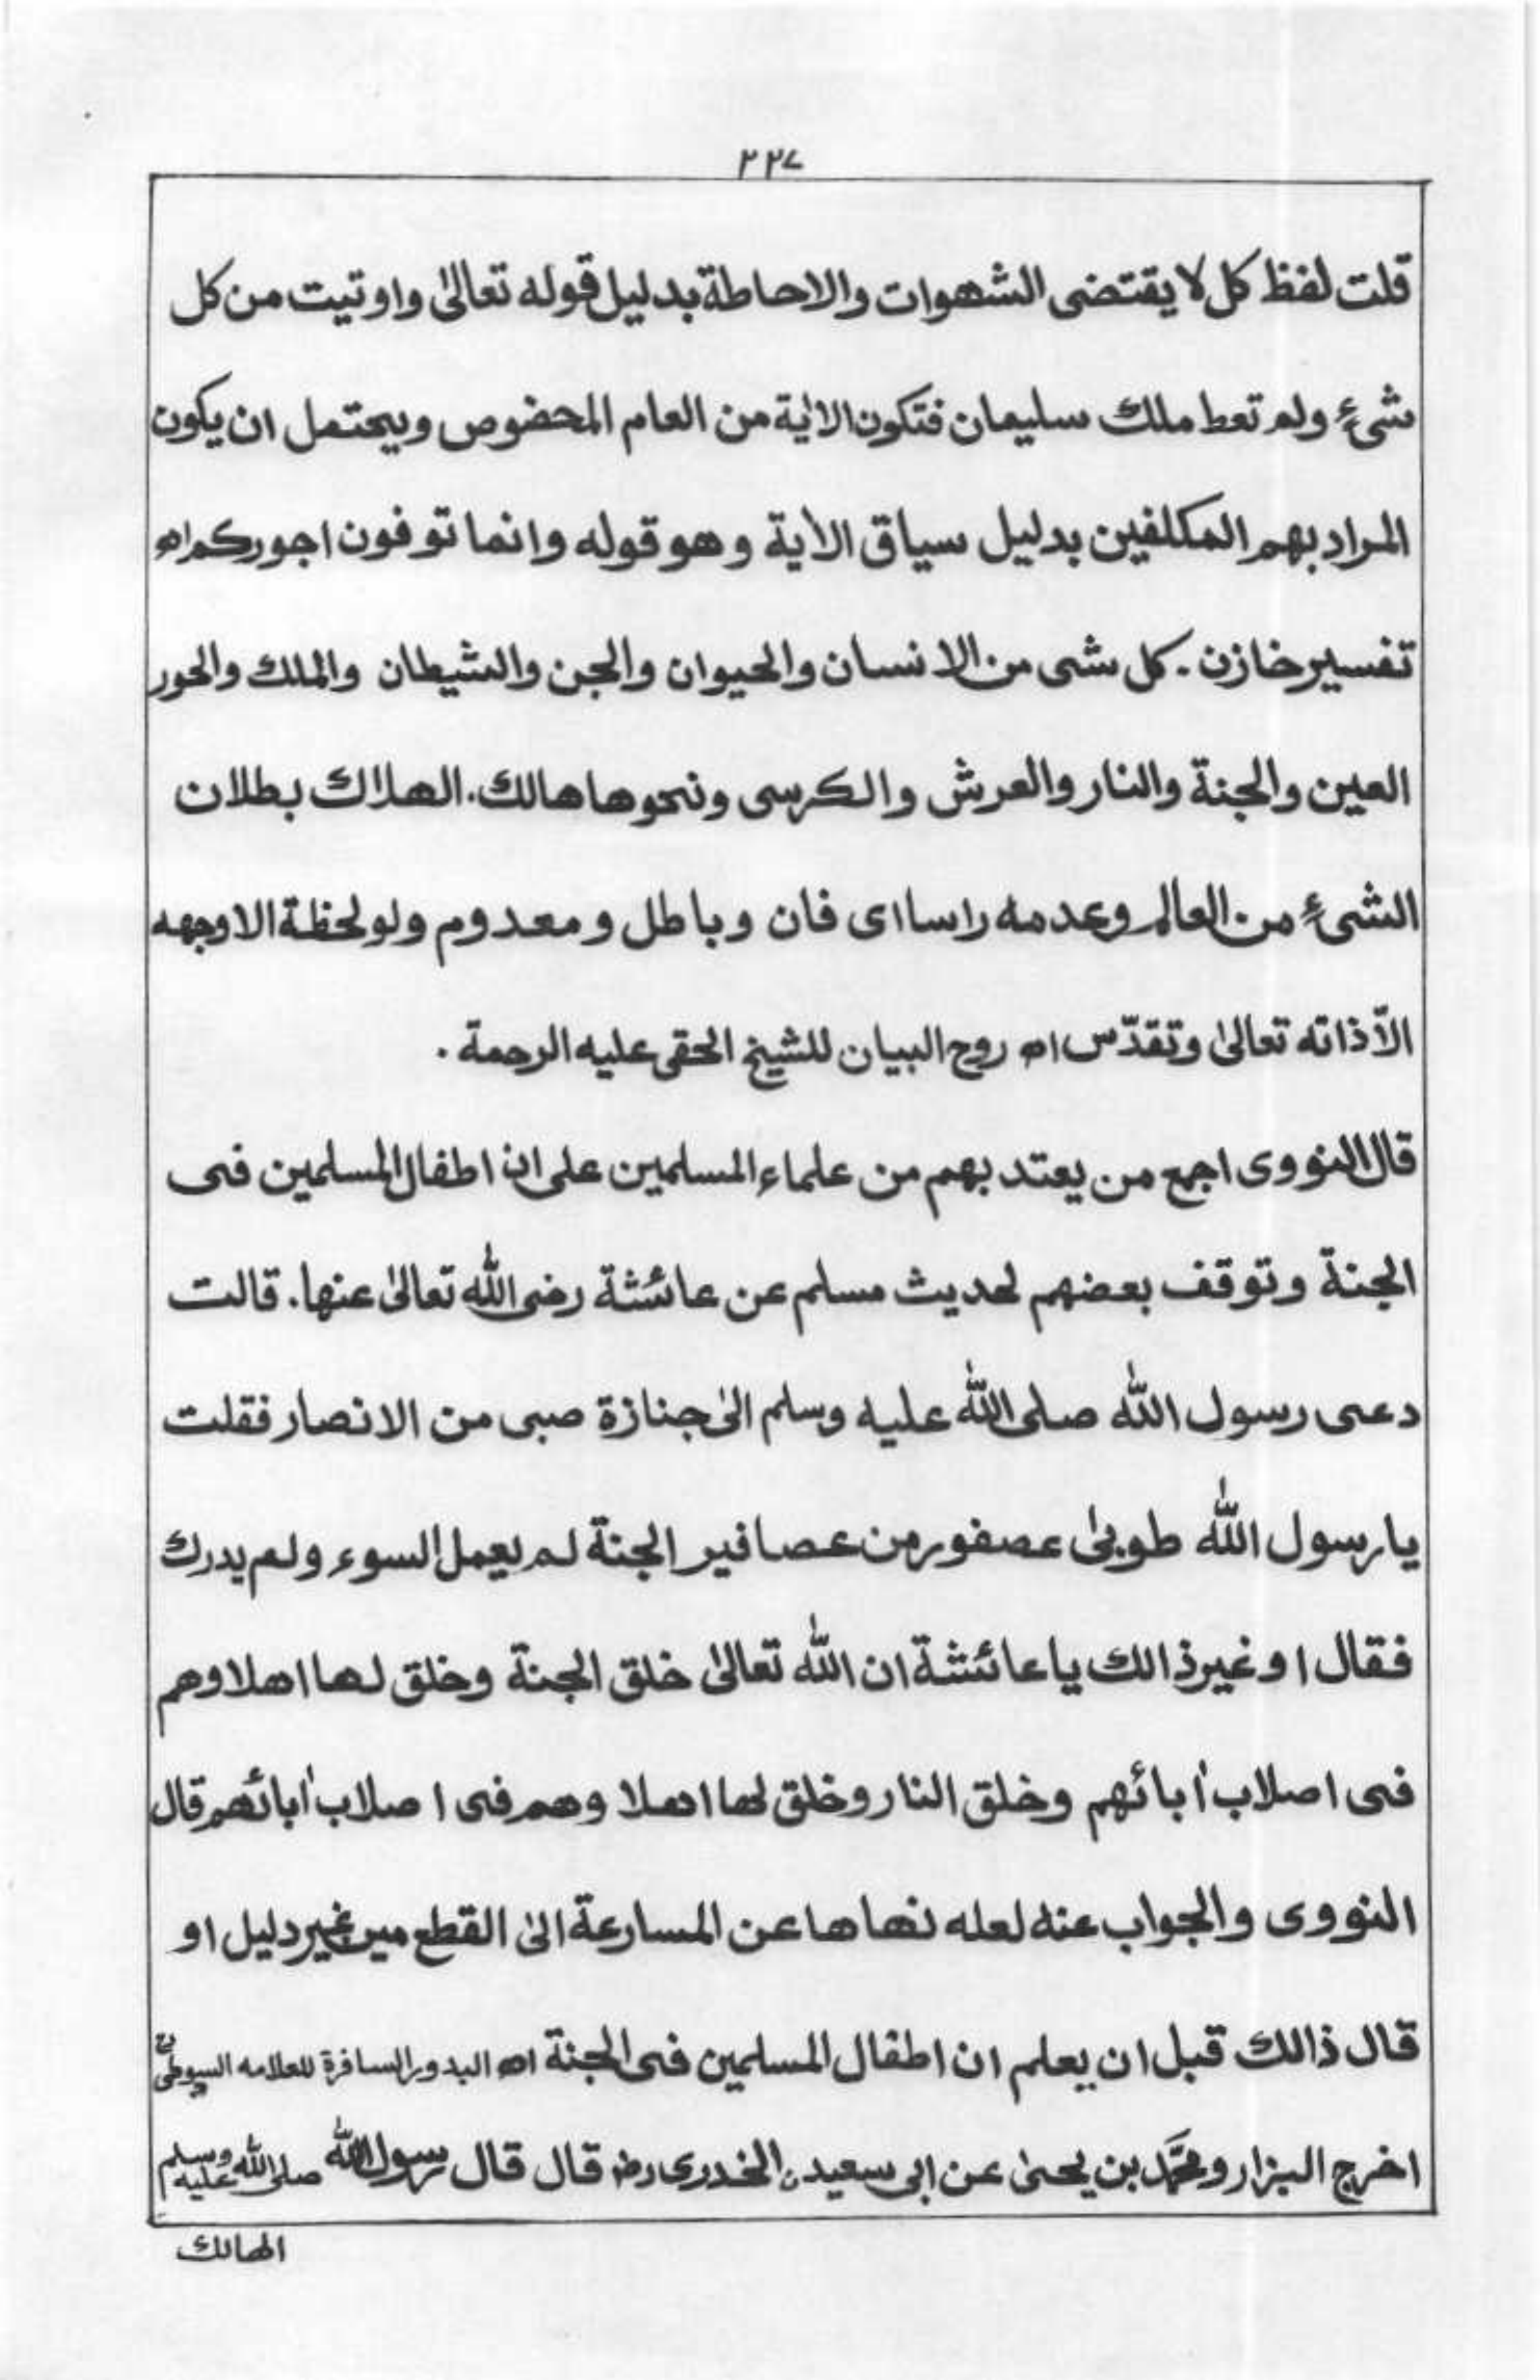 ٢٢٧
قلت لفظ كل لا يقتضى الشهوات والاحاطة بدليل قوله تعالىٰ واوتيت من كل
شئٍ ولم تعط ملك سليمان فتكون الاٰية من العام المحضوص ويحتمل ان يكون
المراد بهم المكلفين بدليل سياق الاٰية وهو قوله وانما توفون اجوركم اه
تفسير خازن . كل شى من الانسان والحيوان والجن والشيطان والملك والحور
العين والجنة والنار والعرش والكرسى ونحوها هالك. الهلاك بطلان
الشئٍ من العالم وعدمه راسا اى فان وباطل ومعدوم ولو لحظة الاوجهه
الاّ ذاته تعالىٰ وتقدّس اه روح البيان للشيخ الحقى عليه الرحمة .
قال النووى اجمع من يعتد بهم من علماء المسلمين على ان اطفال المسلمين فى
الجنة وتوقف بعضهم لحديث مسلم عن عائشة رضى الله تعالىٰ عنها. قالت
دعى رسول الله صلى الله عليه وسلم الىٰ جنازة صبى من الانصار فقلت
يا رسول الله طوبىٰ عصفور من عصافير الجنة لم يعمل السوء ولم يدرك
فقال او غير ذالك يا عائشة ان الله تعالىٰ خلق الجنة وخلق لها اهلا وهم
فى اصلاب اٰبائهم وخلق النار وخلق لها اهلا وهم فى اصلاب اٰبائهم قال
النووى والجواب عنه لعله نهاها عن المسارعة الىٰ القطع من غير دليل او
قال ذالك قبل ان يعلم ان اطفال المسلمين فى الجنة اه البدور السافرة للعلامه السيوطىؒ
اخرج البزار ومحمّد بن يحىٰ عن ابى سعيد ن الخدرى رض قال قال رسول الله صلى الله عليه وسلم
الهالك